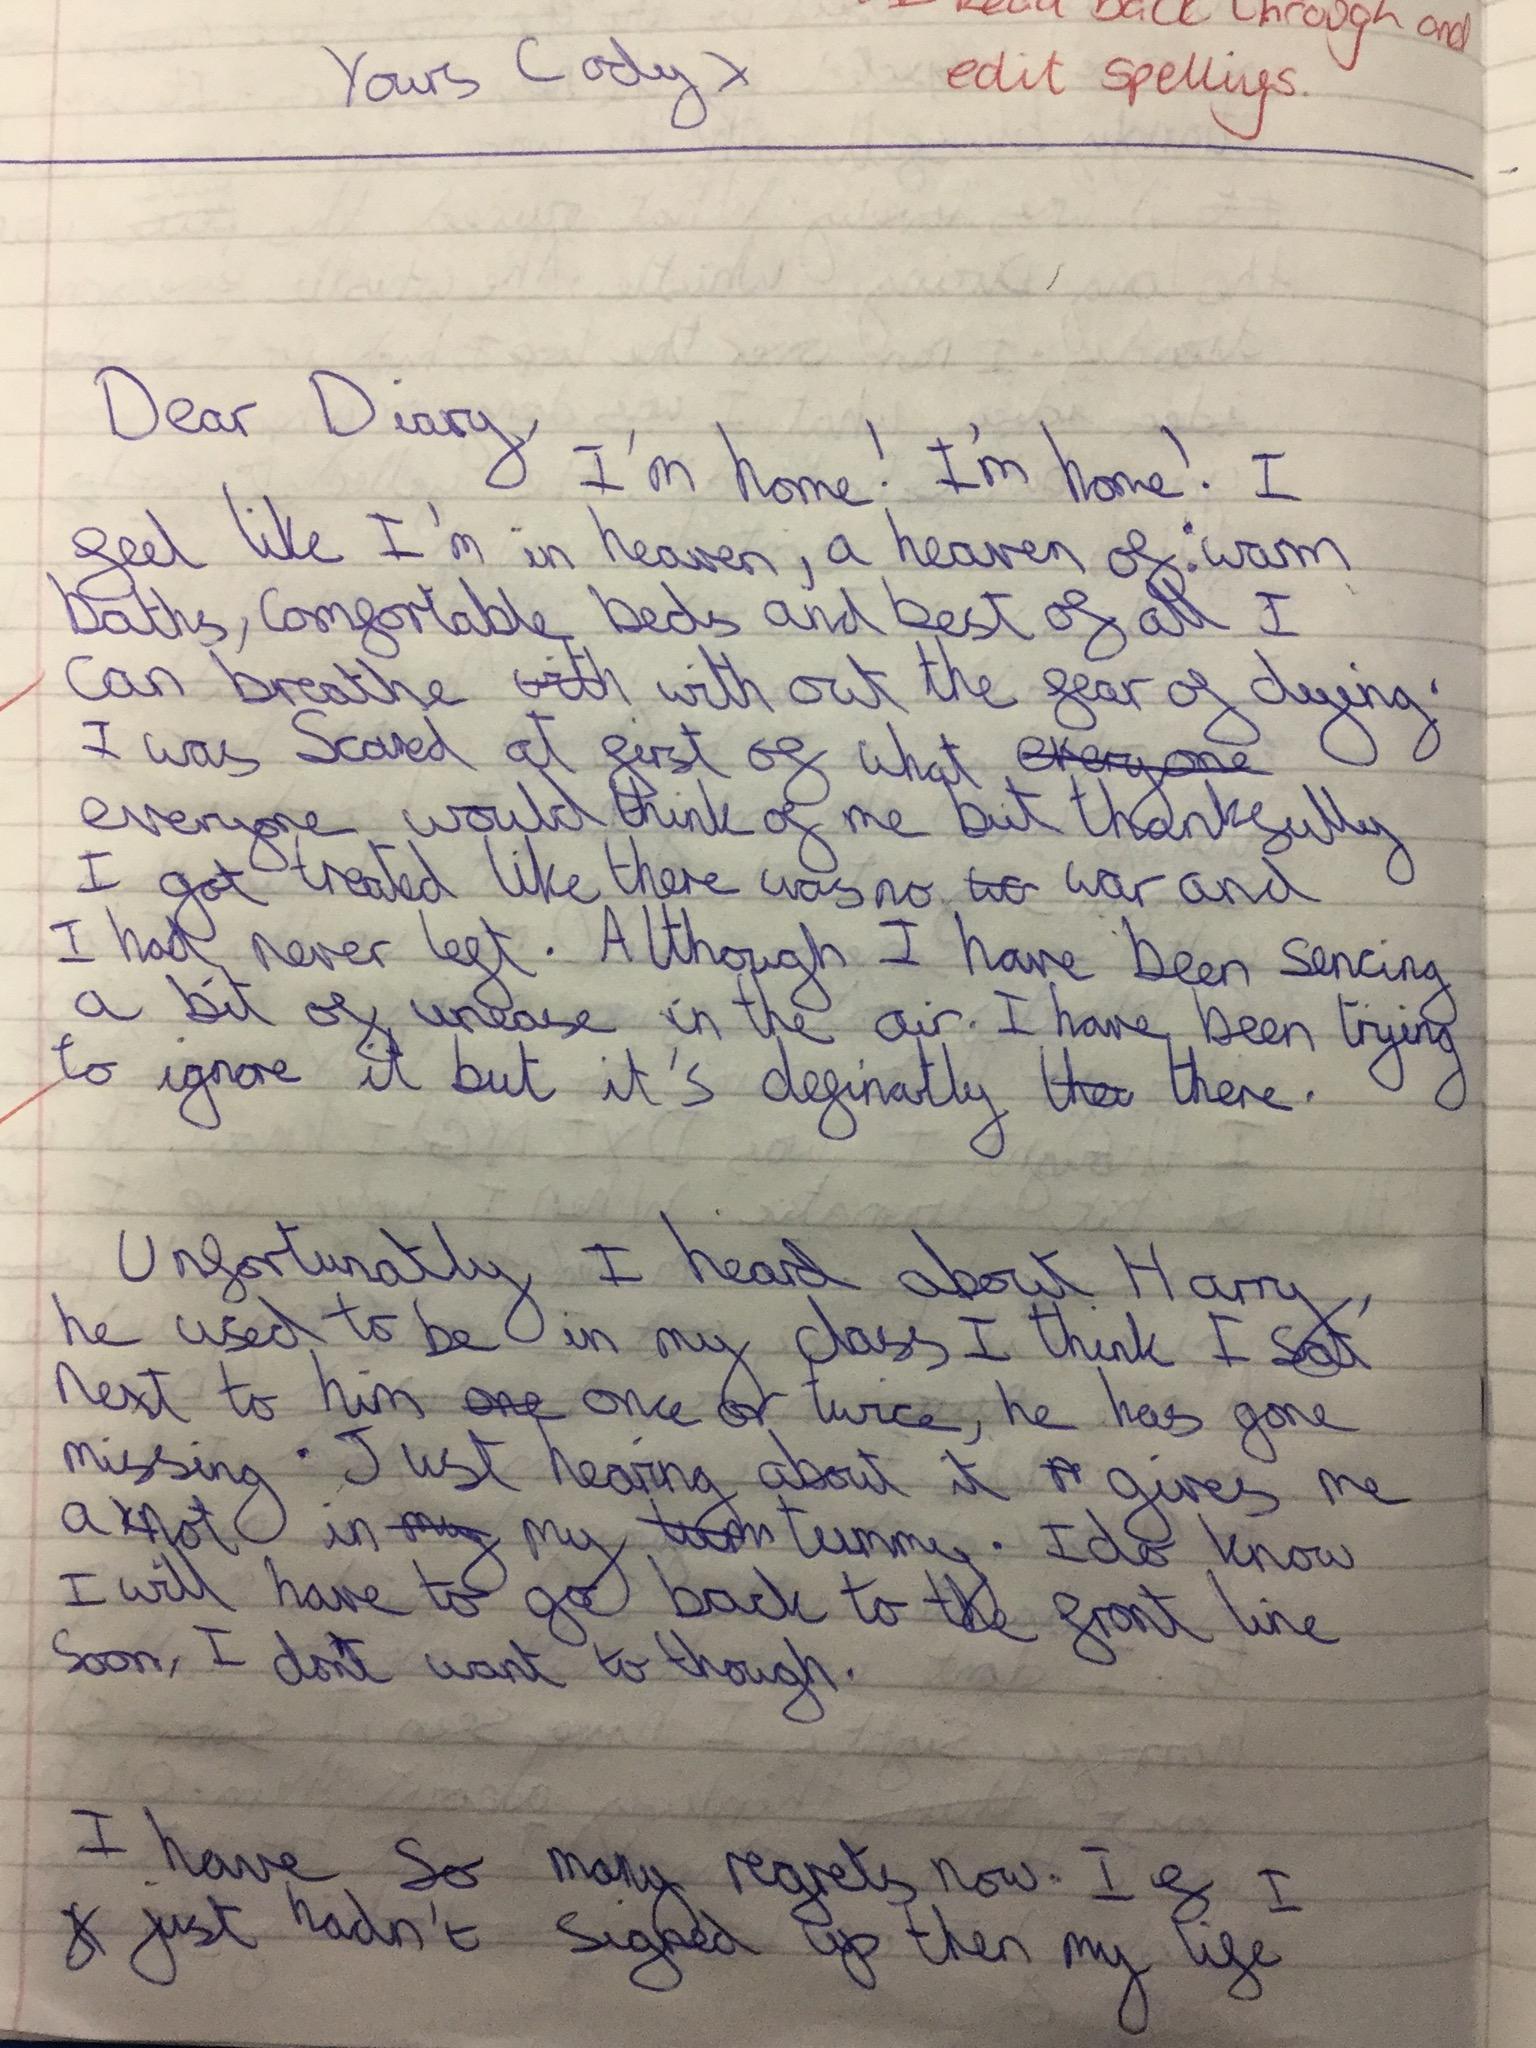 Read back through and
edit spellings.
Yours Cody x
Dear Diary,
I'm home! I'm home! I
feel like I'm in heaven, a heaven of: warm
baths, comfortable beds and best of all I
can breathe with with out the fear of dying.
I was scared at first of what everyone
everyone would think of me but thanksfully
I got treated like there was no wa war and
I had never left. Although I have been sencing
a bit of unease in the air. I have been trying
to ignore it but it's definatly the there.
Unfortunatly I heard about Harry,
he used to be in my class I think I sat
next to him one once or twice, he has gone
missing. Just hearing about it gives me
a knot in my my tum tummy. I do know
I will have to go back to the front line
soon, I don't want to though.
I have so many regrets now. If I
just hadn't signed up then my life